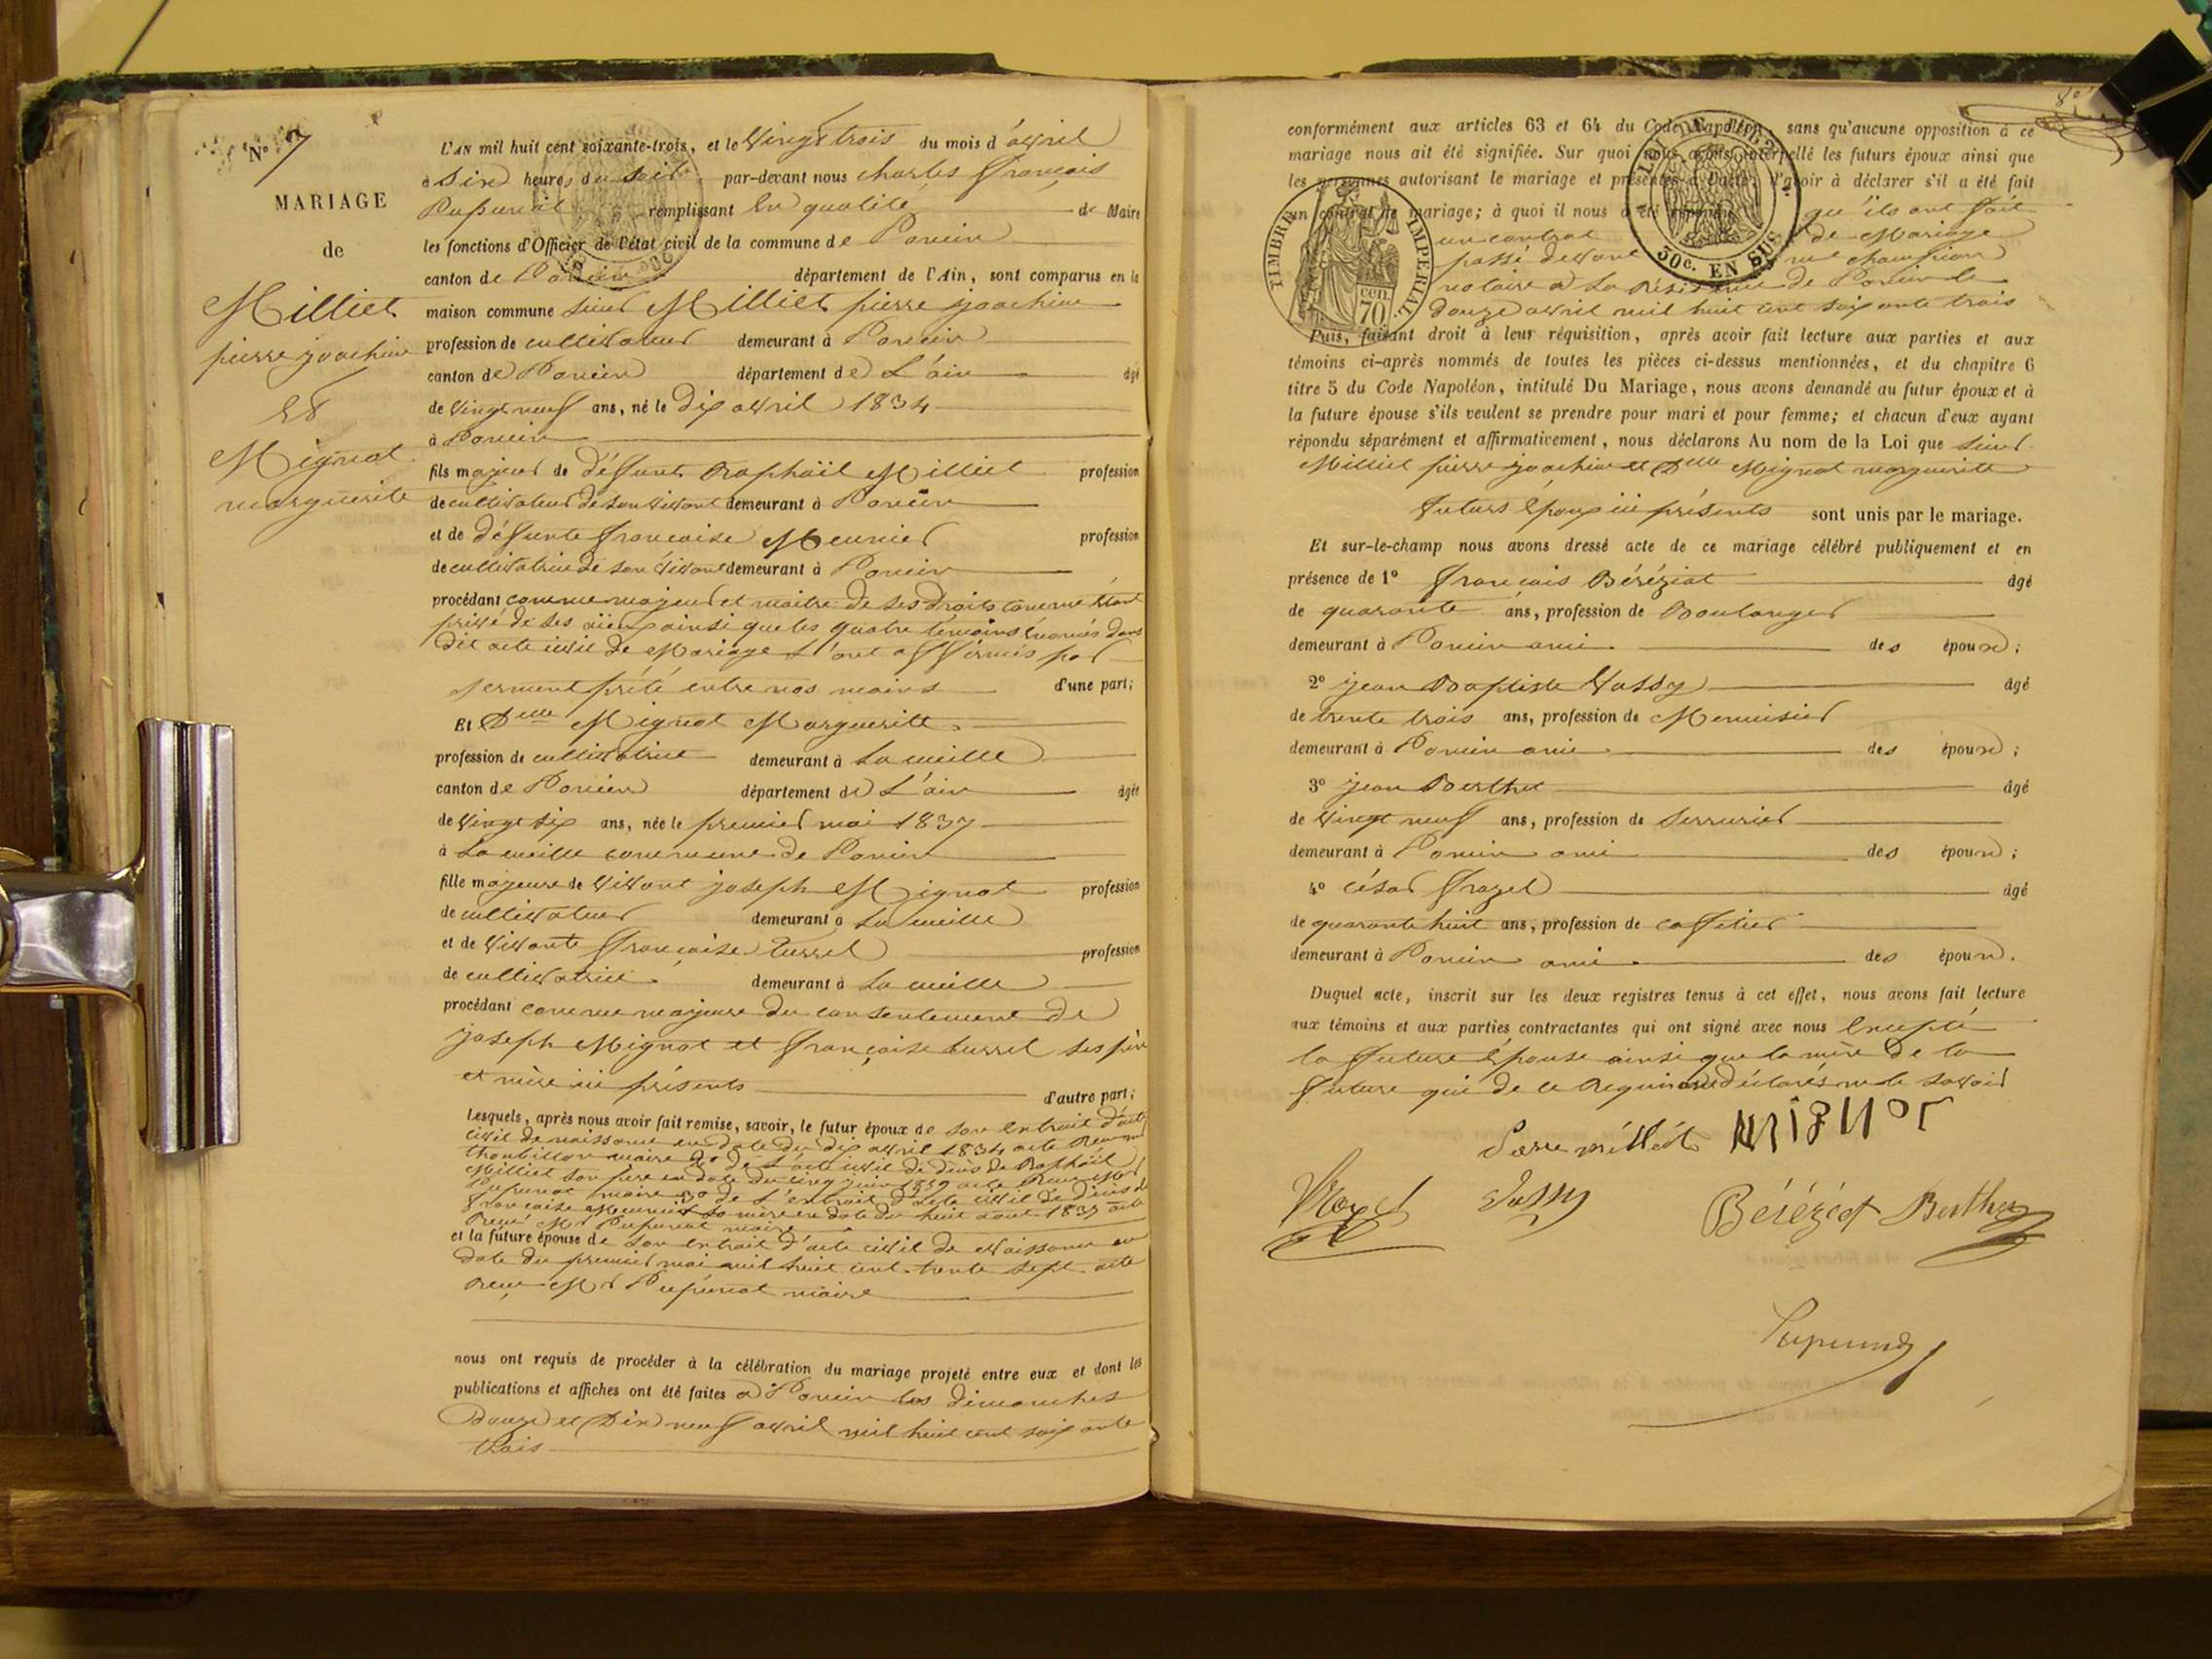 N° 7
MARIAGE
de
Milliet
pierre joachim
Et
Mignot
marguerite
L'AN mil huit cent soixante-trois, et le Vingt trois du mois d'avril
à Six heures du soir par-devant nous charles François
Pupunat remplissant En qualité de Maire
les fonctions d'Officier de l'état civil de la commune de Poncin
canton de Poncin département de l'Ain, sont comparus en la
maison commune sieur Milliet pierre joachim
profession de cultivateur demeurant à Poncin
canton de Poncin département de L'ain âgé
de vingt neuf ans, né le dix avril 1834
à Poncin
fils majeur de défunt Raphaïl Milliet profession
de cultivateur de son vivant demeurant à Poncin
et de défunte françoise Meunier profession
de cultivatrice de son vivant demeurant à Poncin
procédant comme majeur et maitre de ses droits comme étant
privé de ses aieux ainsi que les quatre témoins énomés dans
dit acte civil de Mariage L'ont affirmés par
serment prêté entre nos mains d'une part;
Et Delle Mignot Marguerite
profession de cultivatrice demeurant à La cueille
canton de Poncin département de L'ain âgée
de vingt six ans, née le premier mai 1837
à La cueille commune de Poncin
fille majeure de vivant joseph Mignot profession
de cultivateur demeurant à La cueille
et de vivante françoise turrel profession
de cultivatrice demeurant à La cueille
procédant comme majeure du consentement de
joseph Mignot et françoise turrel ses père
et mère ici présents d'autre part;
Lesquels, après nous avoir fait remise, savoir, le futur époux de son Extrait d'acte
civil de naissance en date du dix avril 1834 acte Reçu
maire 2° de L'acte civil de décès de Raphaïl
Milliet son père en date du cinq juin acte Reçu Mr
Pupunat maire 3° de L'extrait d'acte civil de décès de
françoise Meunier sa mère en date du huit aout 1837 acte
Reçu Mr Pupunat maire
et la future épouse de son extrait d'acte civil de Naissance en
date du premier mai mil huit cent trente sept acte
Reçu Mr Pupunat maire
nous ont requis de procéder à la célébration du mariage projeté entre eux et dont les
publications et affiches ont été faites à Poncin les dimanches
Douze et Dix neuf avril mil huit cent soixante
trois
conformément aux articles 63 et 64 du Code Napoléon, sans qu'aucune opposition à ce
mariage nous ait été signifiée. Sur quoi nous avons interpellé les futurs époux ainsi que
les personnes autorisant le mariage et présentes à l'acte, d'avoir à déclarer s'il a été fait
un contrat de mariage; à quoi il nous a été répondu qu'ils ont fait
un contrat de Mariage
passé devant me champion
notaire à La Résidence de Poncin le
douze avril mil huit cent soixante trois
TIMBRE IMPÉRIAL
70 cen.
30c. EN SUS
Puis, faisant droit à leur réquisition, après avoir fait lecture aux parties et aux
témoins ci-après nommés de toutes les pièces ci-dessus mentionnées, et du chapitre 6
titre 5 du Code Napoléon, intitulé Du Mariage, nous avons demandé au futur époux et à
la future épouse s'ils veulent se prendre pour mari et pour femme; et chacun d'eux ayant
répondu séparément et affirmativement, nous déclarons Au nom de la Loi que sieur
Milliet pierre joachim et Delle Mignot marguerite
futurs Epoux ici présents sont unis par le mariage.
Et sur-le-champ nous avons dressé acte de ce mariage célébré publiquement et en
présence de 1° françois Béréziat âgé
de quarante ans, profession de Boulanger
demeurant à Poncin ami des époux;
2° jean Baptiste Vassy âgé
de trente trois ans, profession de Menuisier
demeurant à Poncin ami des époux;
3° jean Berthet âgé
de vingt neuf ans, profession de serrurier
demeurant à Poncin ami des époux;
4° césar frazel âgé
de quarante huit ans, profession de caffetier
demeurant à Poncin ami des époux.
Duquel acte, inscrit sur les deux registres tenus à cet effet, nous avons fait lecture
aux témoins et aux parties contractantes qui ont signé avec nous Excepté
la future Epouse ainsi que la mère de la
future qui de ce Requis ont déclarés ne le savoir
Pierre milliet MIGNOT
Vassy Béréziat Berthet
Pupunat